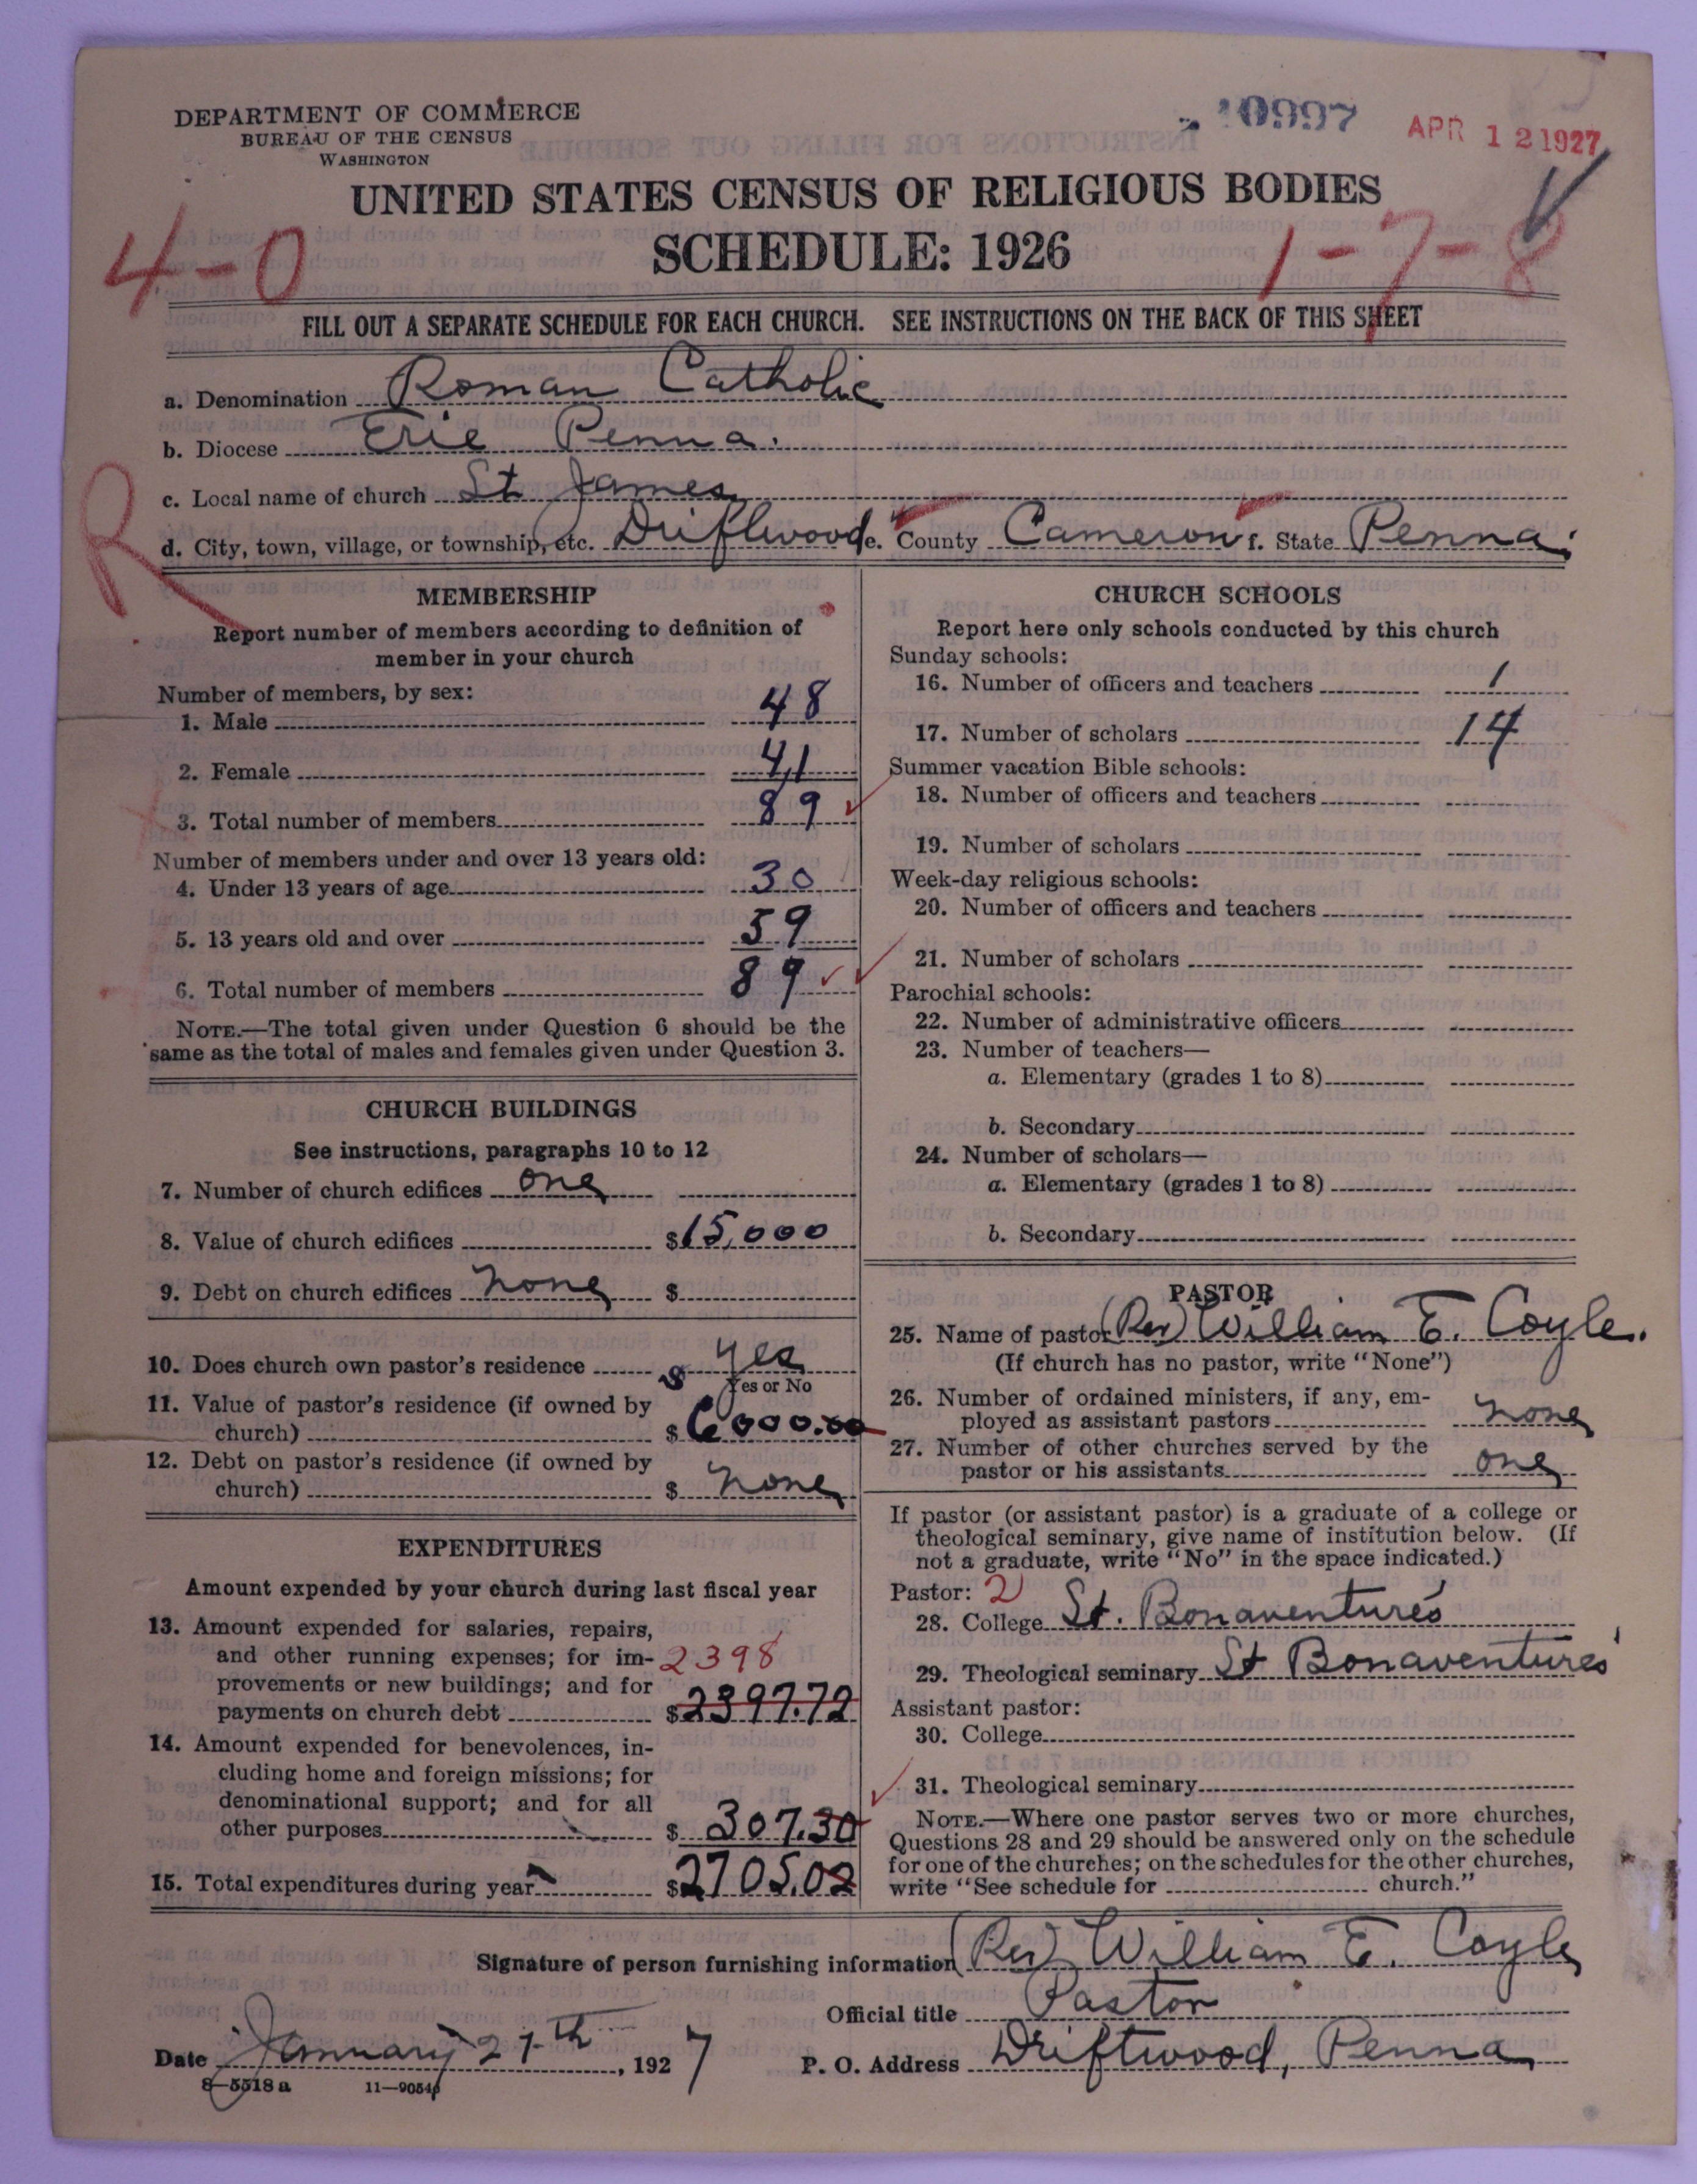 DEPARTMENT OF COMMERCE
BUREAU OF THE CENSUS
WASHINGTON
10997
APR 12 1927
UNITED STATES CENSUS OF RELIGIOUS BODIES
SCHEDULE: 1926
4-0
1-7-8
FILL OUT A SEPARATE SCHEDULE FOR EACH CHURCH. SEE INSTRUCTIONS ON THE BACK OF THIS SHEET
a. Denomination Roman Catholic
b. Diocese Erie Penna.
c. Local name of church St James
d. City, town, village, or township, etc. Driftwood e. County Cameron f. State Penna.
R
MEMBERSHIP
Report number of members according to definition of
member in your church
Number of members, by sex:
1. Male 48
2. Female 41
3. Total number of members 89
Number of members under and over 13 years old:
4. Under 13 years of age 30
5. 13 years old and over 59
6. Total number of members 89
NOTE.—The total given under Question 6 should be the
same as the total of males and females given under Question 3.
CHURCH BUILDINGS
See instructions, paragraphs 10 to 12
7. Number of church edifices one
8. Value of church edifices $15,000
9. Debt on church edifices none $
10. Does church own pastor's residence yes
Yes or No
11. Value of pastor's residence (if owned by
church) $6000.00
12. Debt on pastor's residence (if owned by
church) $ none
EXPENDITURES
Amount expended by your church during last fiscal year
13. Amount expended for salaries, repairs,
and other running expenses; for im- 2398
provements or new buildings; and for
payments on church debt $2397.72
14. Amount expended for benevolences, in-
cluding home and foreign missions; for
denominational support; and for all
other purposes $307.30
15. Total expenditures during year $2705.02
CHURCH SCHOOLS
Report here only schools conducted by this church
Sunday schools:
16. Number of officers and teachers 1
17. Number of scholars 14
Summer vacation Bible schools:
18. Number of officers and teachers
19. Number of scholars
Week-day religious schools:
20. Number of officers and teachers
21. Number of scholars
Parochial schools:
22. Number of administrative officers
23. Number of teachers—
a. Elementary (grades 1 to 8)
b. Secondary
24. Number of scholars—
a. Elementary (grades 1 to 8)
b. Secondary
PASTOR
25. Name of pastor (Rev) William E. Coyle.
(If church has no pastor, write "None")
26. Number of ordained ministers, if any, em-
ployed as assistant pastors none
27. Number of other churches served by the
pastor or his assistants one
If pastor (or assistant pastor) is a graduate of a college or
theological seminary, give name of institution below. (If
not a graduate, write "No" in the space indicated.)
Pastor: 2
28. College St. Bonaventure's
29. Theological seminary St Bonaventures'
Assistant pastor:
30. College
31. Theological seminary
NOTE.—Where one pastor serves two or more churches,
Questions 28 and 29 should be answered only on the schedule
for one of the churches; on the schedules for the other churches,
write "See schedule for church."
Signature of person furnishing information (Rev) William E. Coyle
Official title Pastor
Date January 27th, 1927 P. O. Address Driftwood, Penna
8-5518a 11-9054